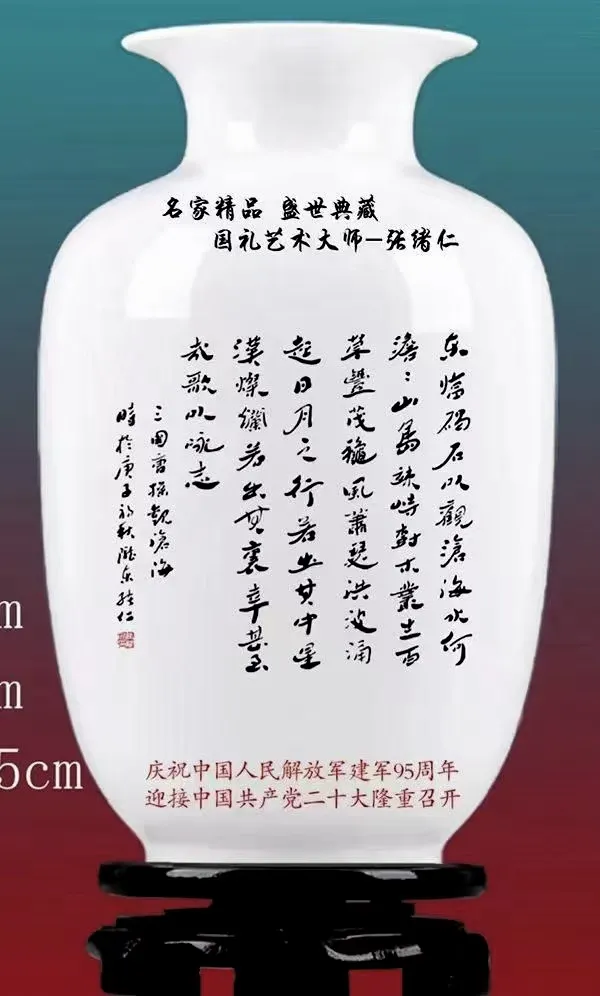 名家精品 盛世典藏
国礼艺术大师-张绪仁
东临碣石以觀滄海水何
澹〻山島竦峙樹木叢生百
草豐茂龝風蕭瑟洪波涌
起日月之行若出其中星
漢燦爛若出其裏幸甚至
哉歌以詠志
三国曹操觀滄海
時於庚子初秋隴东绪仁
m
m
5cm
庆祝中国人民解放军建军95周年
迎接中国共产党二十大隆重召开